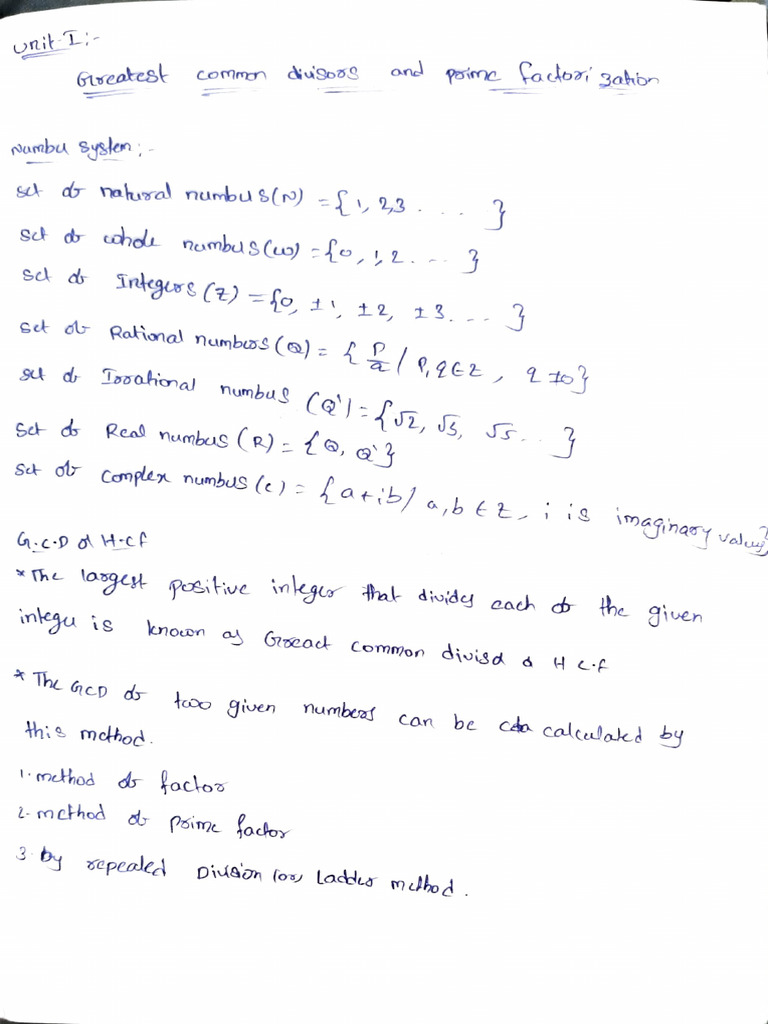 Unit-I:-
Greatest common divisors and prime factorization
Number System:-
set of natural numbers(N) = {1, 2,3 . . . . }
set of whole numbers(w) = {0, 1, 2 . . . . }
set of Integers (Z) = {0, ±1, ±2, ±3. . . . }
set of Rational numbers (Q) = { P/q / P,q ∈ Z, q ≠0}
set of Irrational numbers (Q') = {√2, √3, √5 . . . }
set of Real numbers (R) = {Q, Q'}
set of complex numbers (c) = {a+ib / a,b ∈ Z, i is imaginary value}
G.C.D or H.C.F
* The largest positive integer that divides each of the given
integer is known as Greact common divisor or H C.F
* The GCD of two given numbers can be calculated by
this method.
1. method of factor
2. method of prime factor
3. by repeated Division (or) Ladder method.